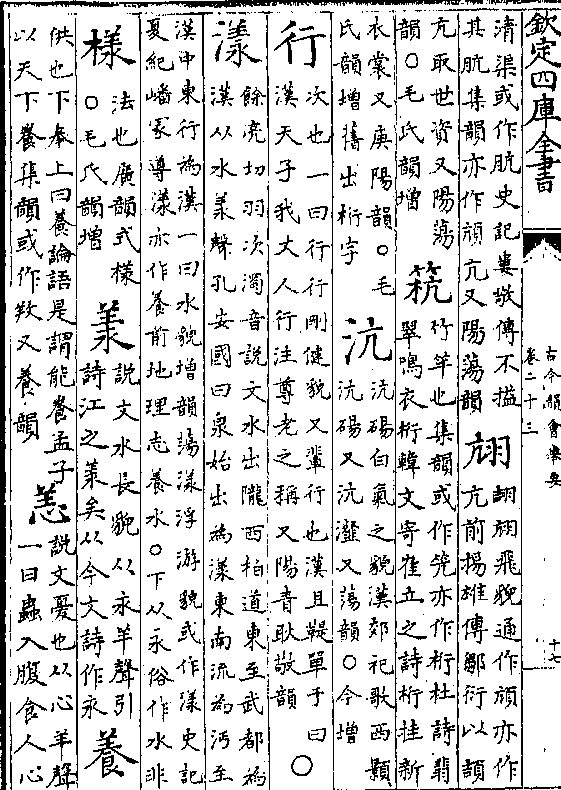 欽定四庫全書
古今韻會舉要
卷二十三
十七
清渠或作肮史記婁敬傳不搤
其肮集韻亦作頏亢又陽蕩韻
翓
翓翓飛貌通作頏亦作
亢前揚雄傳鄒衍以頡
亢取世資又陽蕩
韻○毛氏韻增
竹竿也集韻或作笐亦作桁杜詩翡
翠鳴衣桁韓文寄崔立之詩桁挂新
衣裳又庚陽韻○毛
氏韻增舊出桁字
沆
沆碭白氣之貌漢郊祀歌西顥
沆碭又沆瀣又蕩韻○今增
行
次也一曰行行剛健貌又輩行也漢且鞮單于曰○
漢天子我丈人行注尊老之稱又陽青耿敬韻
漾
餘亮切羽次濁音說文水出隴西柏道東至武都為
漢从水羕聲孔安國曰泉始出為漾東南流為沔至
漢中東行為漢一曰水貌增韻蕩漾浮游貌或作瀁史記
夏紀嶓冢導瀁亦作養前地理志養水○下从永俗作水非
樣
法也廣韻式樣
○毛氏韻增
羕
說文水長貌从永羊聲引
詩江之羕矣从今文詩作永
養
供也下奉上曰養論語是謂能養孟子
以天下養集韻或作羪又養韻
恙
說文憂也从心羊聲
一曰蟲入腹食人心